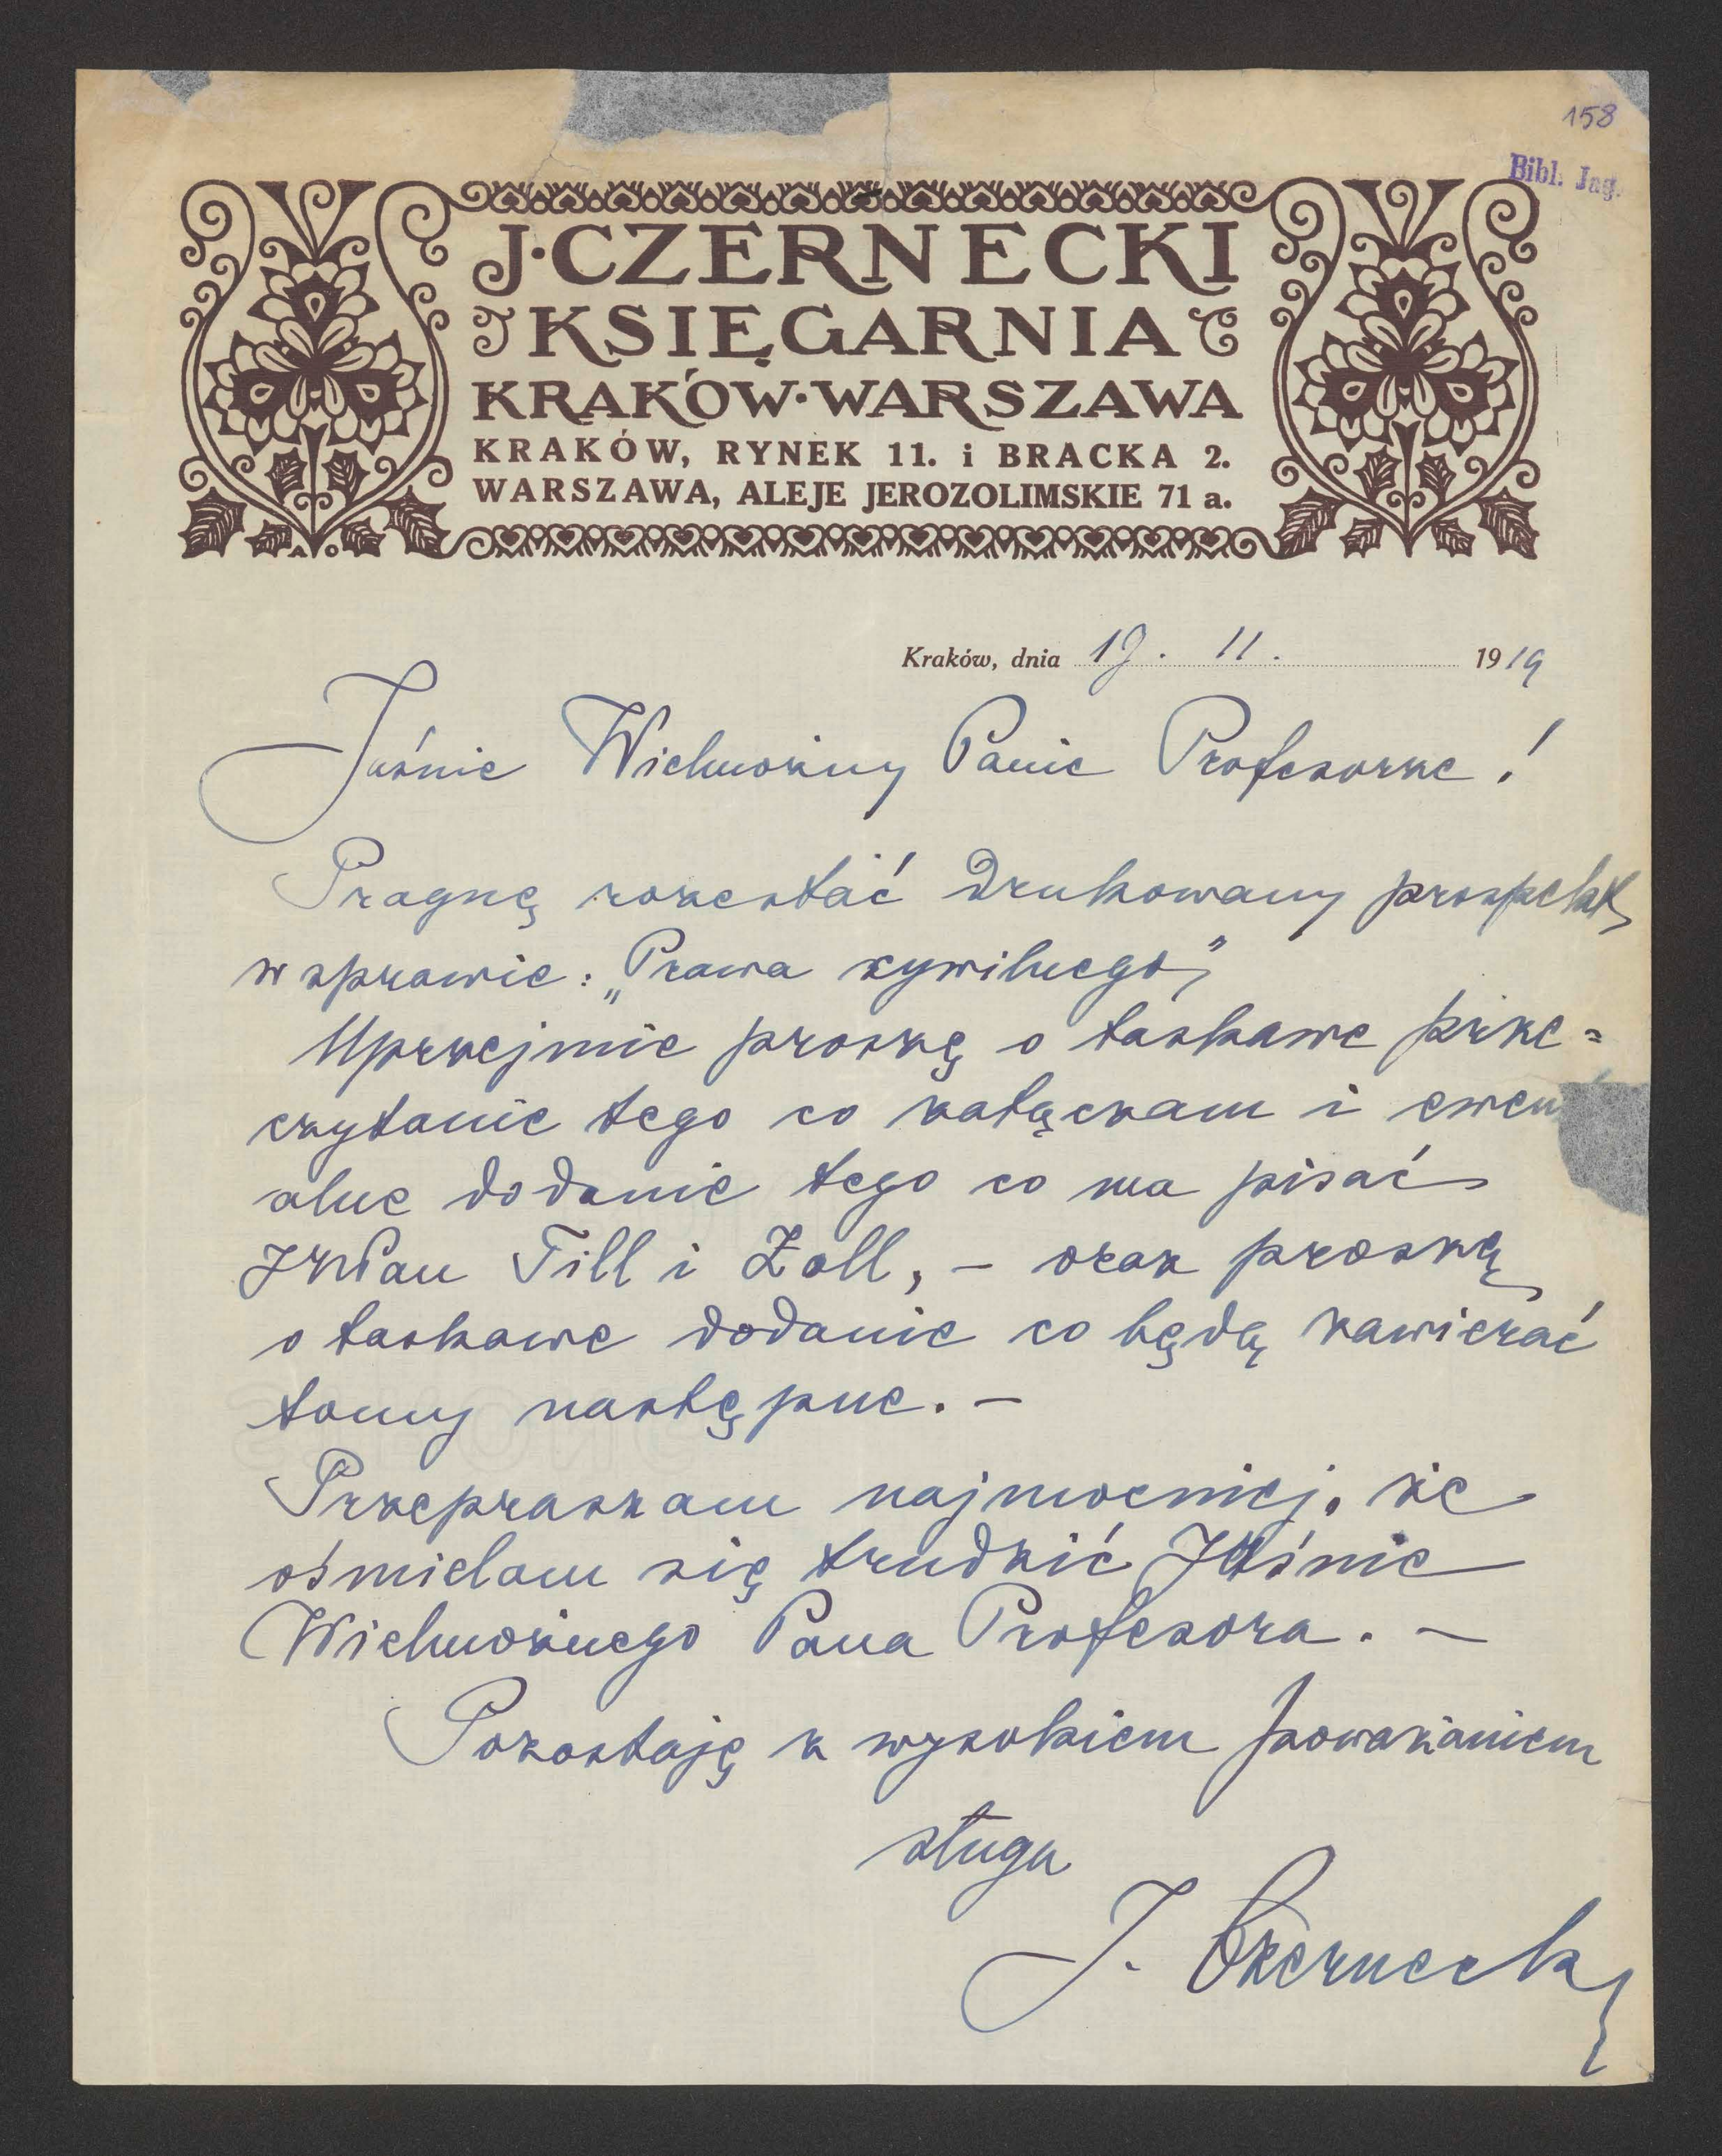 158
Bibl. Jag.
J. CZERNECKI
KSIĘGARNIA
KRAKÓW · WARSZAWA
KRAKÓW, RYNEK 11. i BRACKA 2.
WARSZAWA, ALEJE JEROZOLIMSKIE 71 a.
Kraków, dnia 19. 11. 1919
Jaśnie Wielmożny Panie Profesorze!
Pragnę rozesłać drukowany prospekt
w sprawie: „Prawa cywilnego”
Uprzejmie proszę o łaskawe prze=
czytanie tego co załączam i ewen
alne dodanie tego co ma pisać
JWPan Till i Zoll, – oraz proszę
o łaskawe dodanie co będą zawierać
tomy następne. –
Przepraszam najmocniej, że
ośmielam się trudzić Jaśnie
Wielmożnego Pana Profesora. –
Pozostaję z wysokiem poważaniem
sługa
J. Czernecki